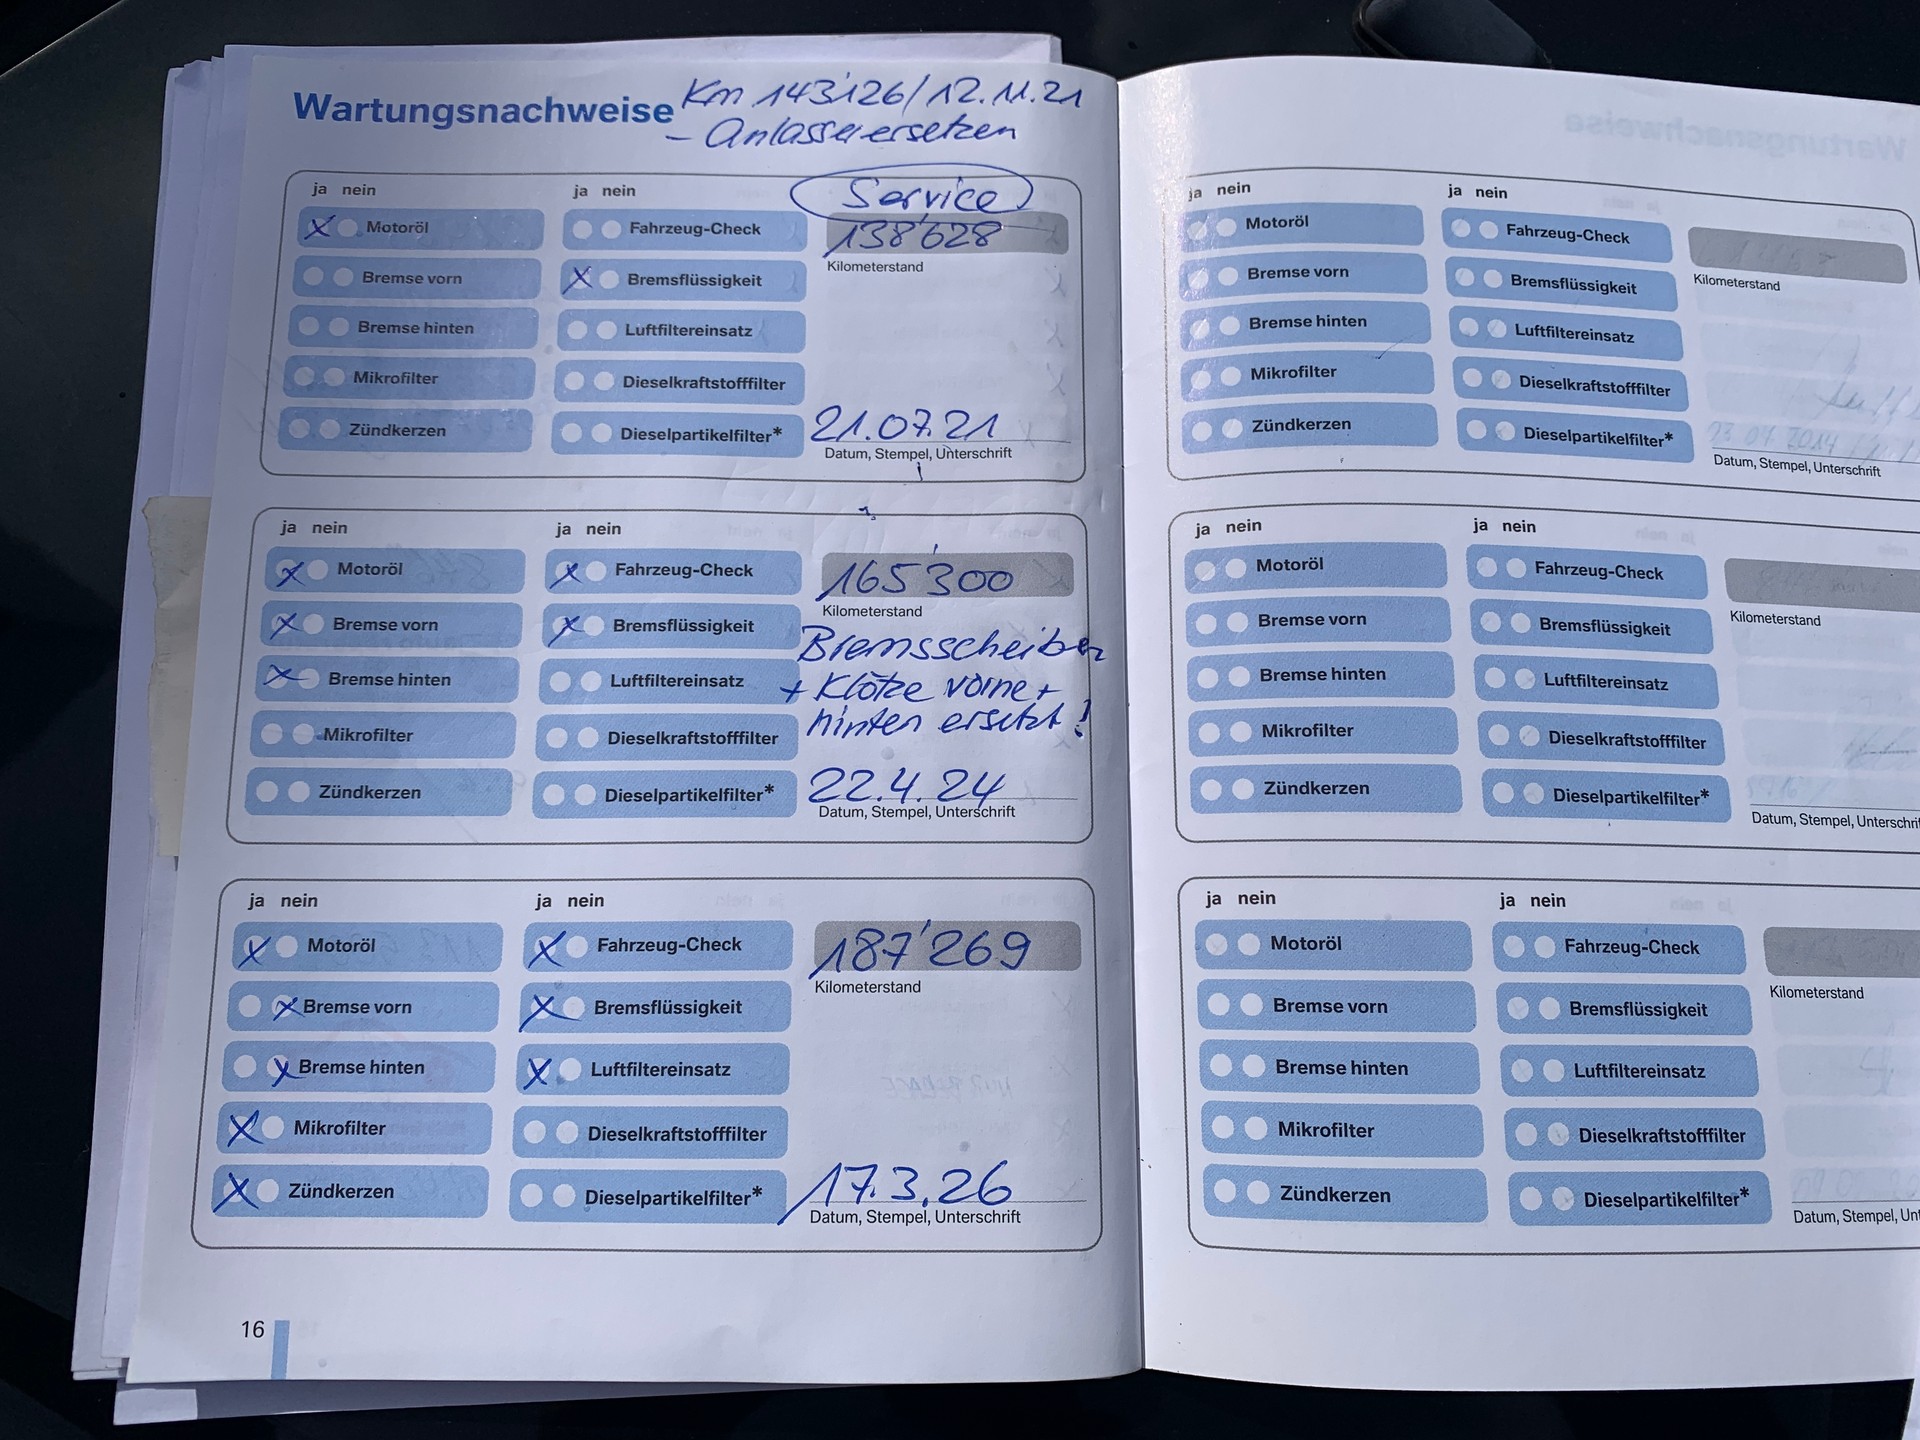 Wartungsnachweise Km 143'126/12.11.21
- Anlasser ersetzen
ja nein
ja nein
Service
X Motoröl
Fahrzeug-Check
138'628
Kilometerstand
Bremse vorn
X Bremsflüssigkeit
Bremse hinten
Luftfiltereinsatz
Mikrofilter
Dieselkraftstofffilter
Zündkerzen
Dieselpartikelfilter*
21.07.21
Datum, Stempel, Unterschrift
ja nein
ja nein
X Motoröl
X Fahrzeug-Check
165'300
Kilometerstand
X Bremse vorn
X Bremsflüssigkeit
Bremsscheiben
X Bremse hinten
Luftfiltereinsatz
+ Klötze vorne +
hinten ersetzt!
Mikrofilter
Dieselkraftstofffilter
Zündkerzen
Dieselpartikelfilter*
22.4.24
Datum, Stempel, Unterschrift
ja nein
ja nein
X Motoröl
X Fahrzeug-Check
187'269
Kilometerstand
X Bremse vorn
X Bremsflüssigkeit
X Bremse hinten
X Luftfiltereinsatz
X Mikrofilter
Dieselkraftstofffilter
X Zündkerzen
Dieselpartikelfilter*
17.3.26
Datum, Stempel, Unterschrift
16
ja nein
ja nein
Motoröl
Fahrzeug-Check
Kilometerstand
Bremse vorn
Bremsflüssigkeit
Bremse hinten
Luftfiltereinsatz
Mikrofilter
Dieselkraftstofffilter
Zündkerzen
Dieselpartikelfilter*
Datum, Stempel, Unterschrift
ja nein
ja nein
Motoröl
Fahrzeug-Check
Kilometerstand
Bremse vorn
Bremsflüssigkeit
Bremse hinten
Luftfiltereinsatz
Mikrofilter
Dieselkraftstofffilter
Zündkerzen
Dieselpartikelfilter*
Datum, Stempel, Unterschrif
ja nein
ja nein
Motoröl
Fahrzeug-Check
Kilometerstand
Bremse vorn
Bremsflüssigkeit
Bremse hinten
Luftfiltereinsatz
Mikrofilter
Dieselkraftstofffilter
Zündkerzen
Dieselpartikelfilter*
Datum, Stempel, Unt